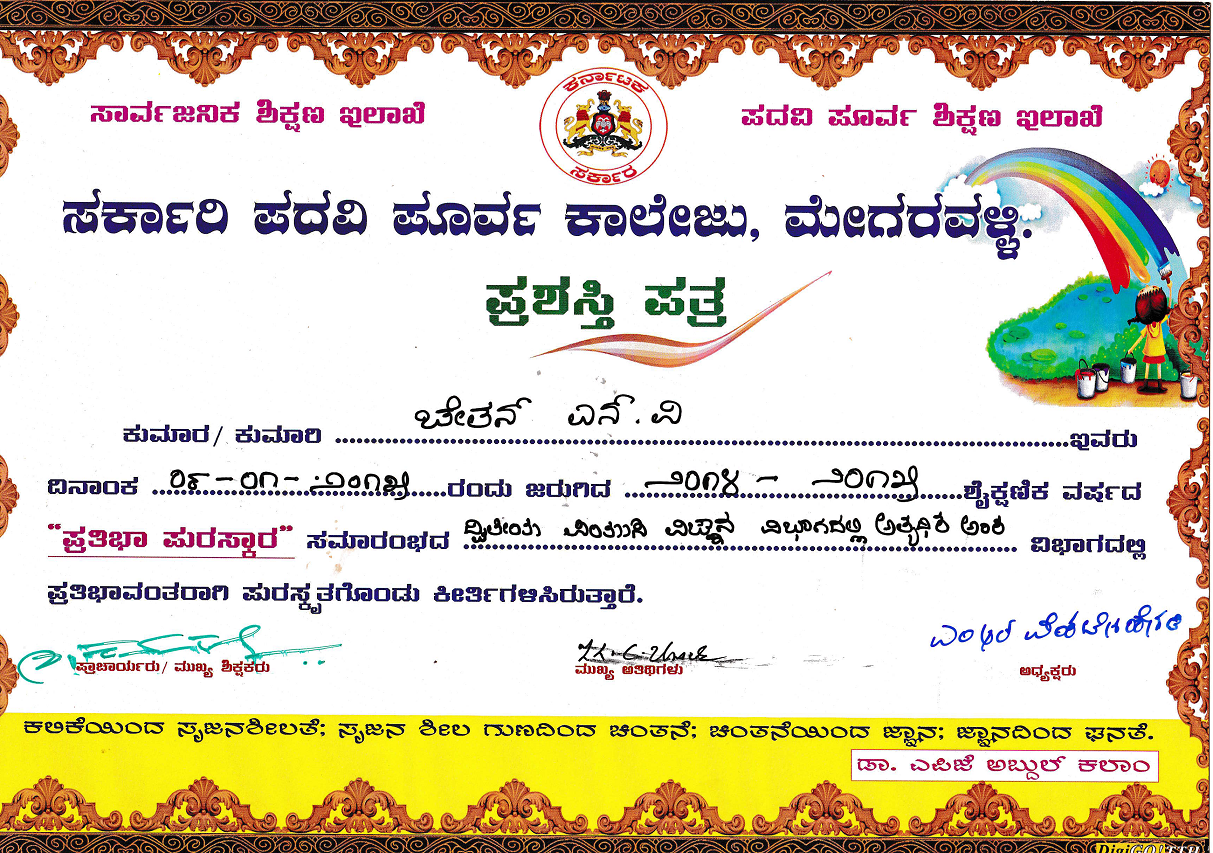 ಕರ್ನಾಟಕ
ಸರ್ಕಾರ
ಸಾರ್ವಜನಿಕ ಶಿಕ್ಷಣ ಇಲಾಖೆ
ಪದವಿ ಪೂರ್ವ ಶಿಕ್ಷಣ ಇಲಾಖೆ
ಸರ್ಕಾರಿ ಪದವಿ ಪೂರ್ವ ಕಾಲೇಜು, ಮೇಗರವಳ್ಳಿ.
ಪ್ರಶಸ್ತಿ ಪತ್ರ
ಕುಮಾರ/ ಕುಮಾರಿ ಚೇತನ್ ಎನ್.ವಿ ಇವರು
ದಿನಾಂಕ ೦೯-೦೧-೨೦೧೫ ರಂದು ಜರುಗಿದ ೨೦೧೪ - ೨೦೧೫ ಶೈಕ್ಷಣಿಕ ವರ್ಷದ
“ಪ್ರತಿಭಾ ಪುರಸ್ಕಾರ” ಸಮಾರಂಭದ ದ್ವಿತೀಯ ಪಿಯುಸಿ ವಿಜ್ಞಾನ ವಿಭಾಗದಲ್ಲಿ ಅತ್ಯಧಿಕ ಅಂಕ ವಿಭಾಗದಲ್ಲಿ
ಪ್ರತಿಭಾವಂತರಾಗಿ ಪುರಸ್ಕೃತಗೊಂಡು ಕೀರ್ತಿಗಳಿಸಿರುತ್ತಾರೆ.
ಪ್ರಾಚಾರ್ಯರು/ ಮುಖ್ಯ ಶಿಕ್ಷಕರು
ಮುಖ್ಯ ಅತಿಥಿಗಳು
ಅಧ್ಯಕ್ಷರು
ಕಲಿಕೆಯಿಂದ ಸೃಜನಶೀಲತೆ; ಸೃಜನ ಶೀಲ ಗುಣದಿಂದ ಚಿಂತನೆ; ಚಿಂತನೆಯಿಂದ ಜ್ಞಾನ; ಜ್ಞಾನದಿಂದ ಘನತೆ.
ಡಾ. ಎಪಿಜೆ ಅಬ್ದುಲ್ ಕಲಾಂ